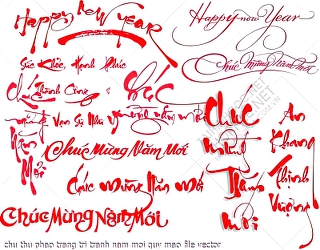 Happy New Year
Happy new Year
Sức Khỏe, Hạnh Phúc
Chúc Mừng năm mới
Chúc Thành Công
Chúc
Vạn Sự Như
Chúc Mừng Năm Mới
Chúc mừng Năm mới
Chúc Mừng Năm Mới
Chúc
mừng
Năm
mới
An
Khang
Thịnh
Vượng
chu thu phap trang tri tranh nam moi quy mao file vector